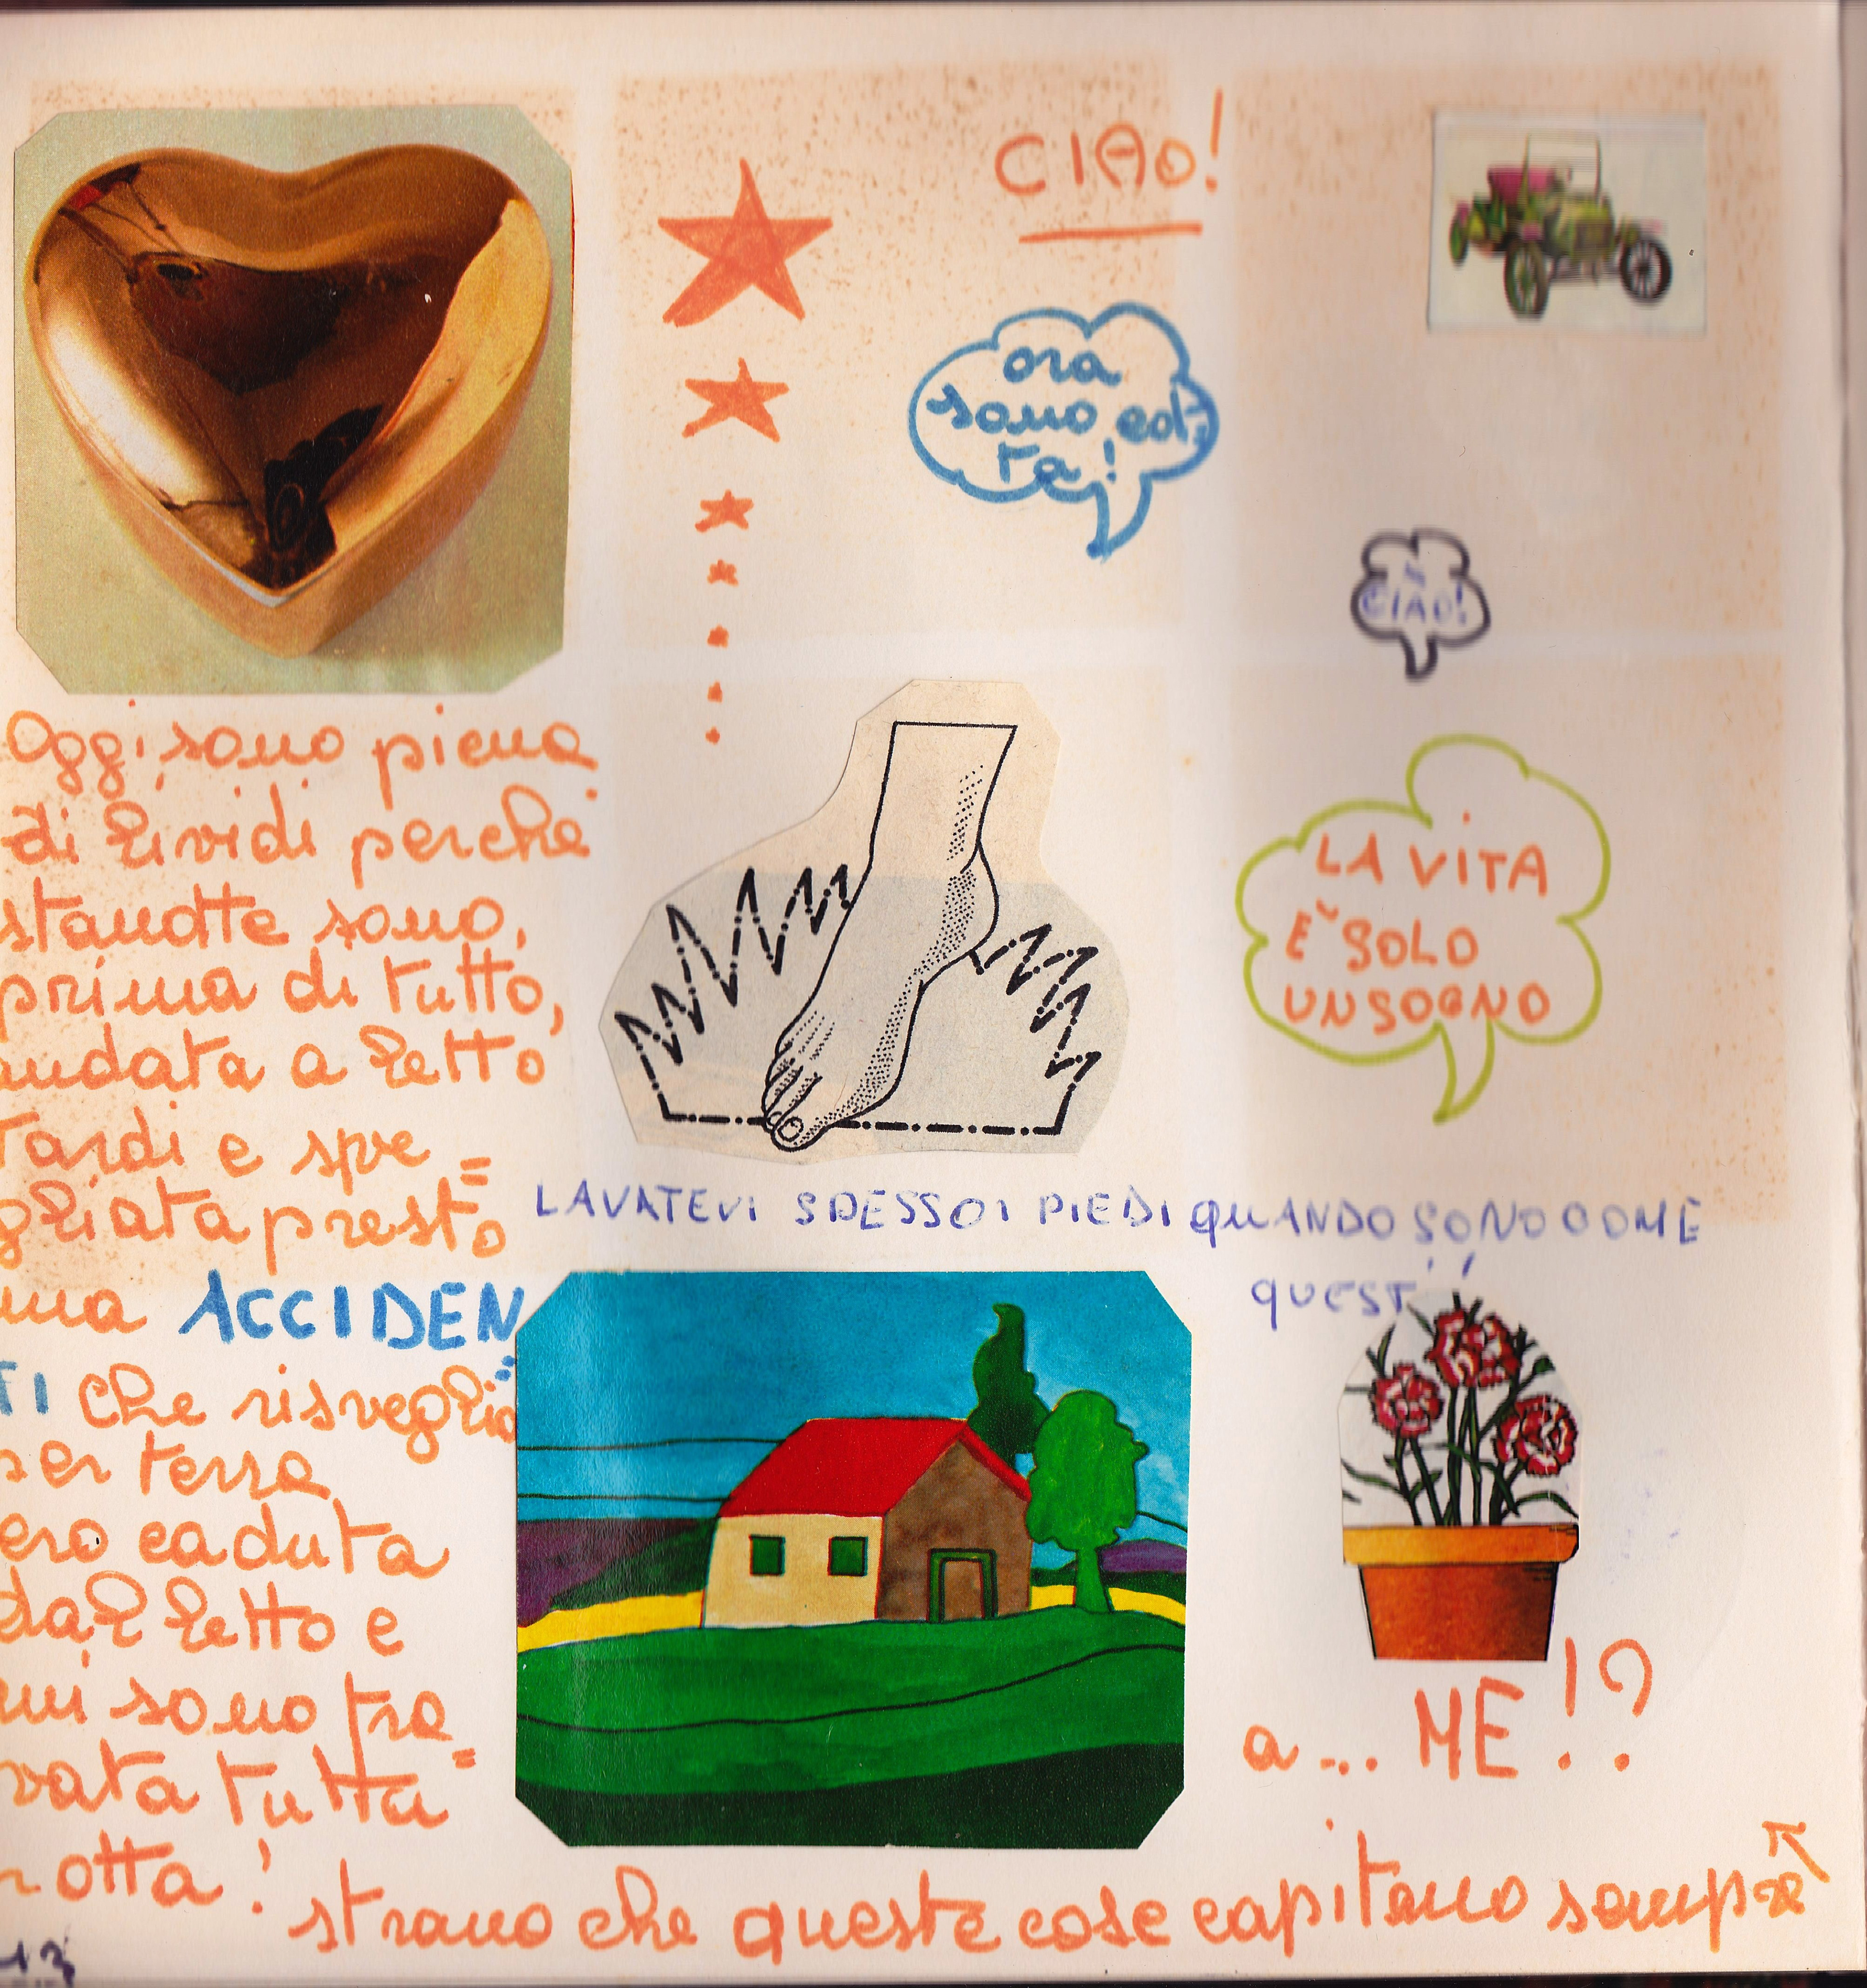 CIAO!
ora
sono edi=
ta!
CIAO!
Oggi sono piena
di lividi perché
stanotte sono,
prima di tutto,
andata a letto
tardi e sve=
gliata presto
ma ACCIDEN=
TI che risveglio
per terra
ero caduta
dal letto e
mi sono tro=
vata tutta
rotta!
LA VITA
È SOLO
UN SOGNO
LAVATEVI SPESSO I PIEDI QUANDO SONO COME
QUESTI
a... ME!?
strano che queste cose capitano sempre
13